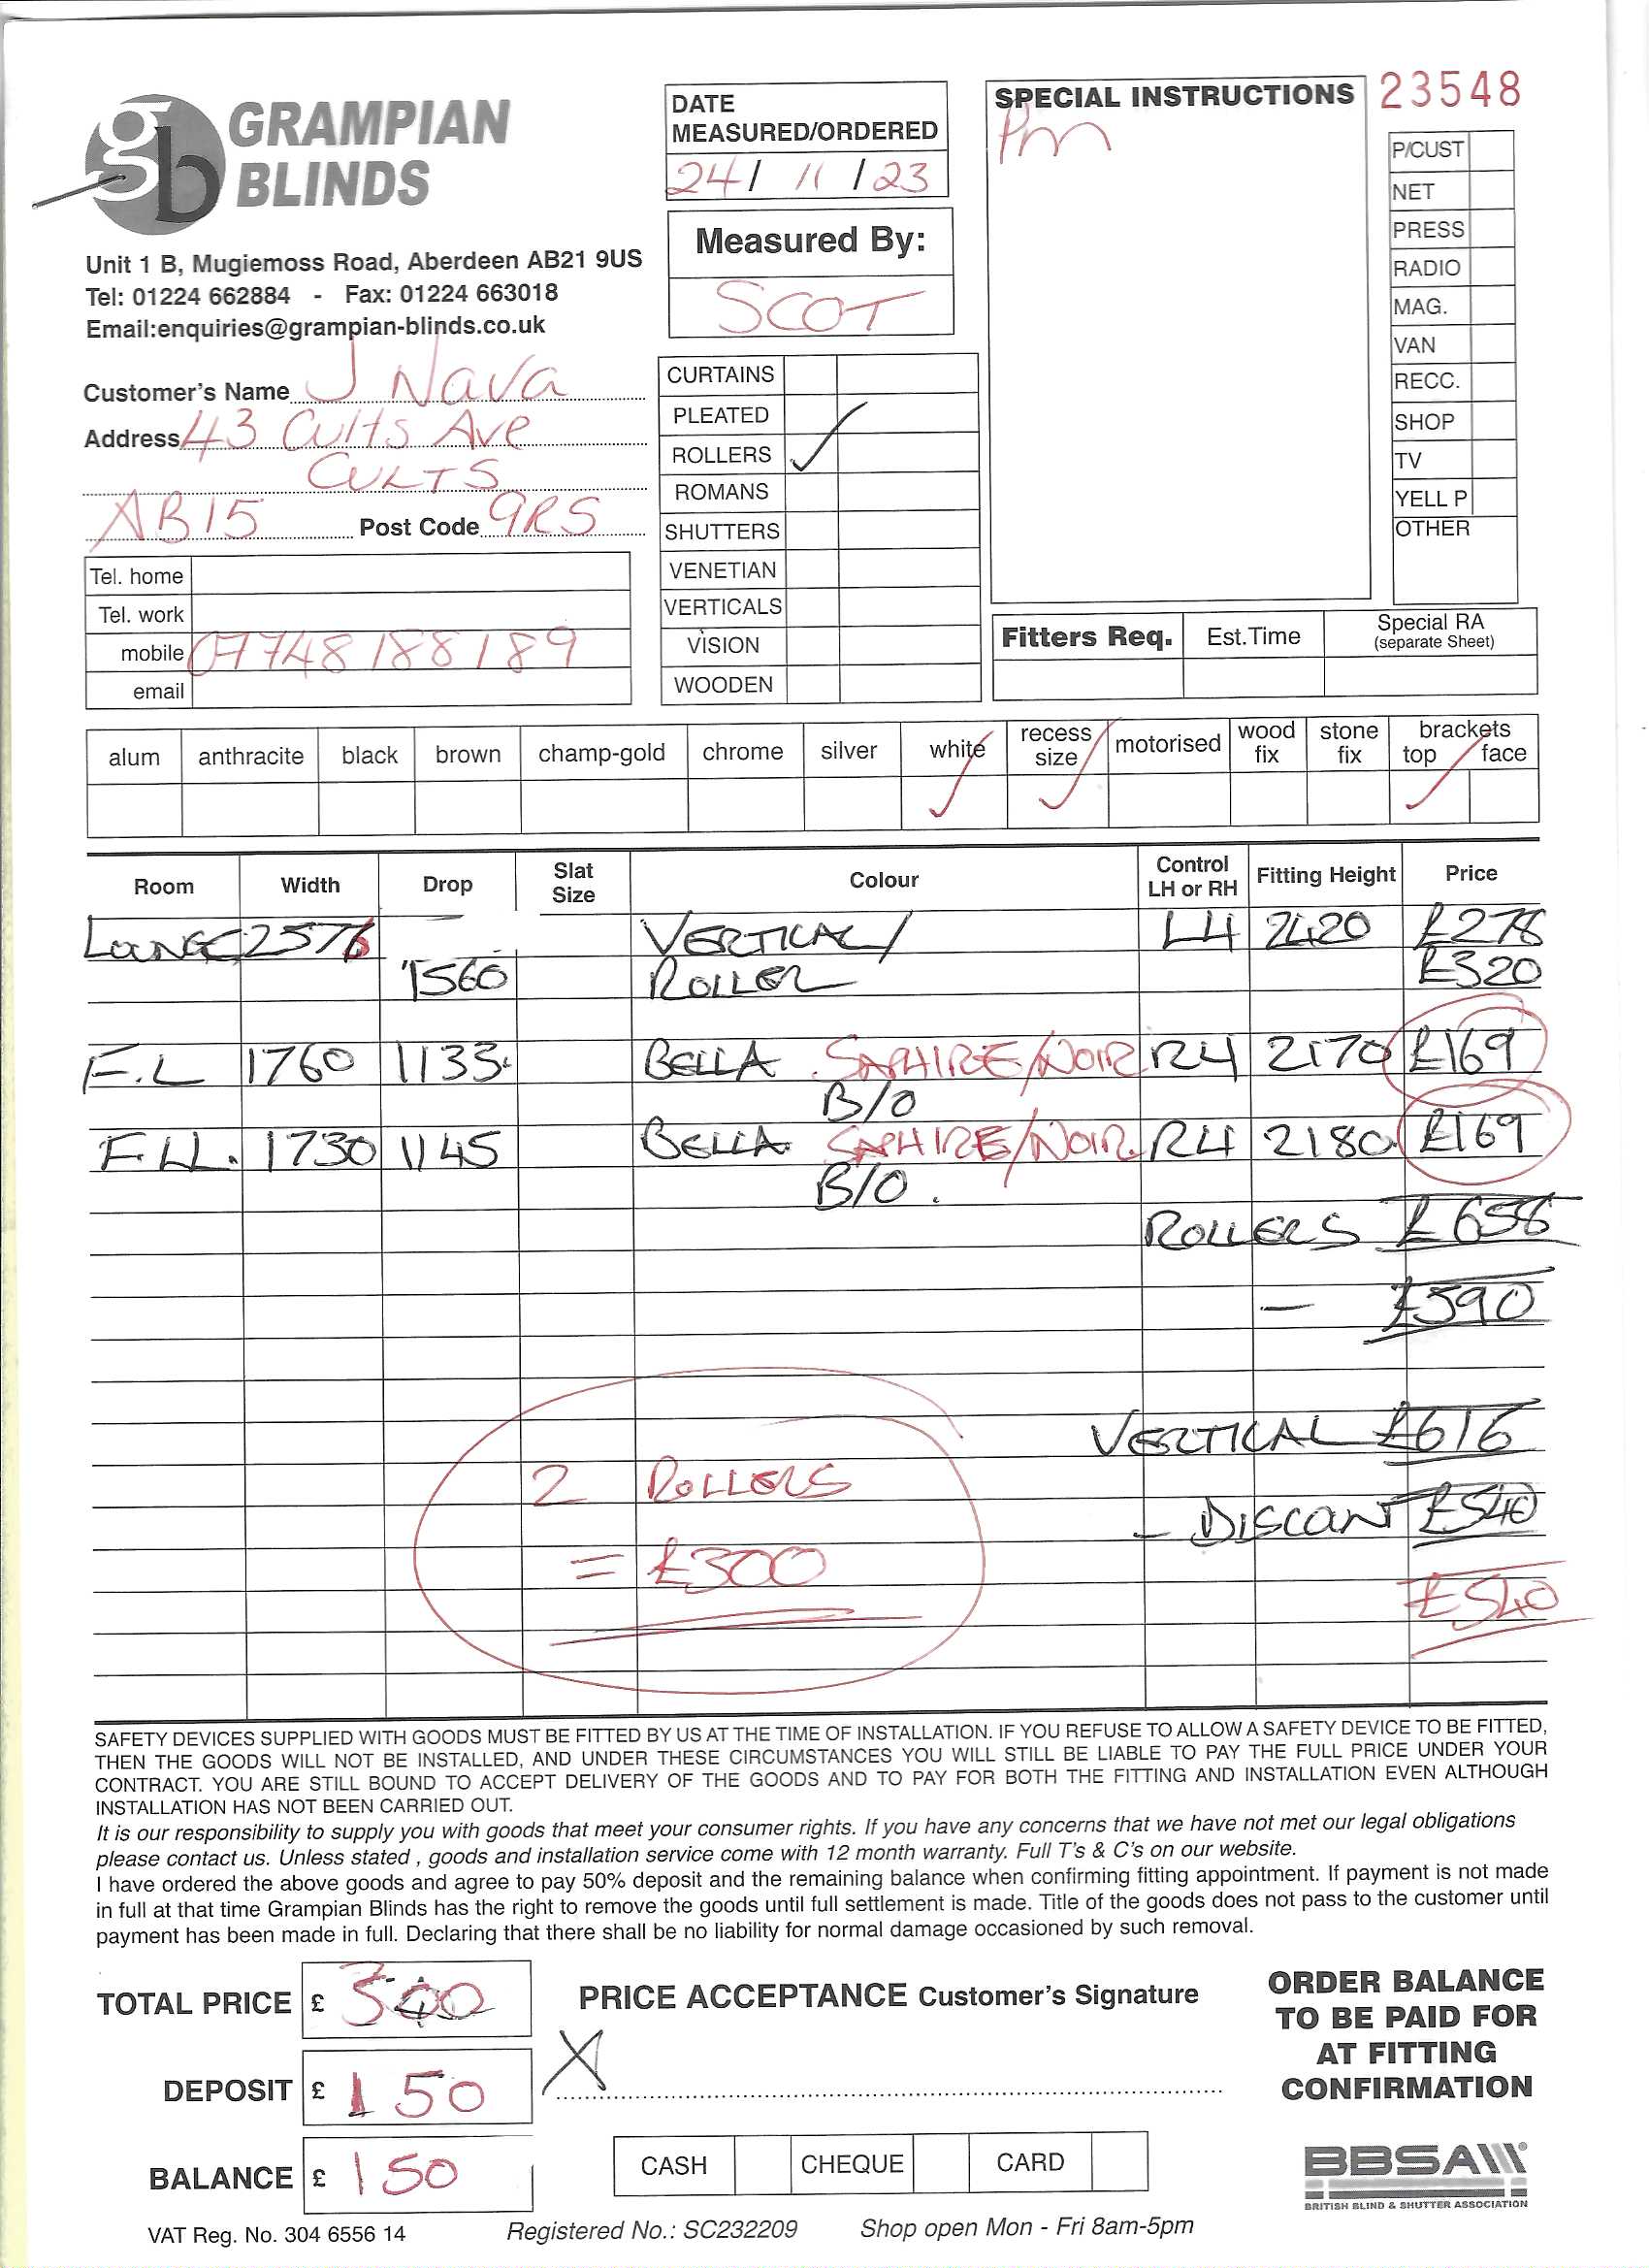 gb GRAMPIAN
BLINDS
Unit 1 B, Mugiemoss Road, Aberdeen AB21 9US
Tel: 01224 662884 - Fax: 01224 663018
Email:enquiries@grampian-blinds.co.uk
Customer's Name J Nava
Address 43 Cults Ave
CULTS
AB15 Post Code 9RS
Tel. home
Tel. work
mobile 07748188189
email
DATE
MEASURED/ORDERED
24/ 11 /23
Measured By:
SCOT
CURTAINS
PLEATED
ROLLERS ✓
ROMANS
SHUTTERS
VENETIAN
VERTICALS
VISION
WOODEN
SPECIAL INSTRUCTIONS
Pm
23548
P/CUST
NET
PRESS
RADIO
MAG.
VAN
RECC.
SHOP
TV
YELL P
OTHER
Fitters Req. Est.Time Special RA
(separate Sheet)
alum anthracite black brown champ-gold chrome silver white recess size motorised wood fix stone fix brackets top face
✓ ✓ ✓
Room Width Drop Slat Size Colour Control LH or RH Fitting Height Price
LOUNGE 2576 VERTICAL/ LH 2420 £278
1560 ROLLER £320
F.L 1760 1133 BELLA SAPHIRE/NOIR RH 2170 £169
B/O
F.LL. 1730 1145 BELLA SAPHIRE/NOIR RH 2180 £169
B/O.
ROLLERS £658
- £590
VERTICAL £616
2 ROLLERS
- DISCANT £540
= £300
£540
SAFETY DEVICES SUPPLIED WITH GOODS MUST BE FITTED BY US AT THE TIME OF INSTALLATION. IF YOU REFUSE TO ALLOW A SAFETY DEVICE TO BE FITTED,
THEN THE GOODS WILL NOT BE INSTALLED, AND UNDER THESE CIRCUMSTANCES YOU WILL STILL BE LIABLE TO PAY THE FULL PRICE UNDER YOUR
CONTRACT. YOU ARE STILL BOUND TO ACCEPT DELIVERY OF THE GOODS AND TO PAY FOR BOTH THE FITTING AND INSTALLATION EVEN ALTHOUGH
INSTALLATION HAS NOT BEEN CARRIED OUT.
It is our responsibility to supply you with goods that meet your consumer rights. If you have any concerns that we have not met our legal obligations
please contact us. Unless stated , goods and installation service come with 12 month warranty. Full T's & C's on our website.
I have ordered the above goods and agree to pay 50% deposit and the remaining balance when confirming fitting appointment. If payment is not made
in full at that time Grampian Blinds has the right to remove the goods until full settlement is made. Title of the goods does not pass to the customer until
payment has been made in full. Declaring that there shall be no liability for normal damage occasioned by such removal.
TOTAL PRICE £ 300
DEPOSIT £ 150
BALANCE £ 150
PRICE ACCEPTANCE Customer's Signature
X
CASH CHEQUE CARD
ORDER BALANCE
TO BE PAID FOR
AT FITTING
CONFIRMATION
BBSA
BRITISH BLIND & SHUTTER ASSOCIATION
VAT Reg. No. 304 6556 14 Registered No.: SC232209 Shop open Mon - Fri 8am-5pm